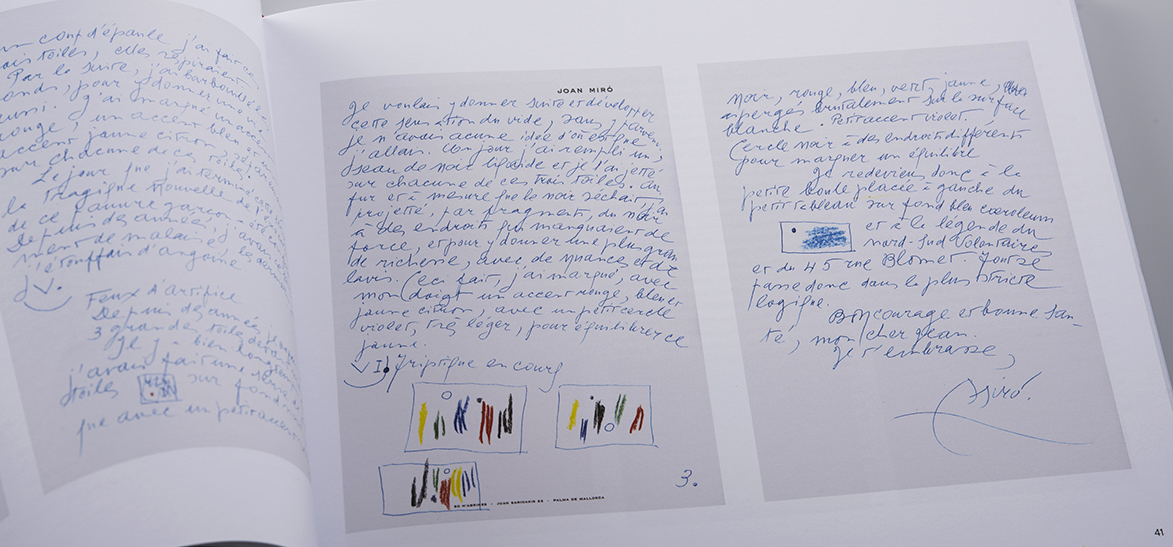 un coup d'épaule j'ai fait
toiles, elles respiraient
Par la suite, j'ai barbouillé
pour y donner une
aussi. j'ai marqué un
rouge, un accent bleu
accent jaune citron,
sur chacune de ces toiles.
Le jour que j'ai terminé
la tragique nouvelle de
de ce pauvre garçon
Depuis des années, j'avais
ment de malaise
j'étouffais d'angoisse
V.
Feux d'artifice
Depuis des années je
3 grandes toiles
j'y bien longtemps
j'avais fait une
étoiles sur fond
que avec un petit accent
JOAN MIRÓ
Je voulais y donner suite et développer
cette sensation du vide, sans y parvenir.
Je n'avais acune idée d'où est que
j'allais. Un jour j'ai rempli un
seau de noir liquide et je l'ai jeté
sur chacune de ces trois toiles. Au
fur et à mesure que le noir séchait, j'ai
projeté, par fragments, du noir
à des endroits qui manquaient de
force, et pour y donner une plus gran
de richesse, avec de nuances et de
lavis. Ceci fait, j'ai marqué, avec
mon doigt un accent rouge, bleu et
jaune citron, avec un petit cercle
violet, très léger, pour équilibrer ce
jaune.
VI. Triptique en cours
3.
JOAN SARIDAKIS · PALMA DE MALLORCA
noir, rouge, bleu, vert, jaune,
aspergés brutalement sur la surface
blanche. Petit accent violet.
Cercle noir à des endroits différents
pour marquer un équilibre
Je redeviens donc à la
petite boule placée à gauche du
petit tableau sur fond bleu cœroleum
et à la légende du
nord-Sud Volontaire
et du 45 rue Blomet. Tout se
passe donc dans la plus stricte
logique.
Bon courage et bonne san-
té, mon cher Jean.
Je t'embrasse,
Miró.
41